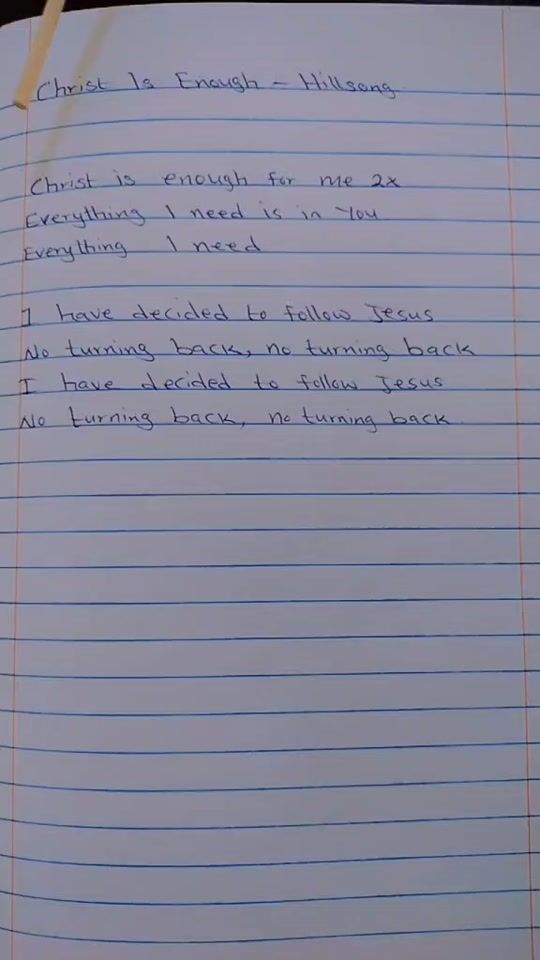 Christ Is Enough - Hillsong
Christ is enough for me 2x
Everything I need is in You
Everything I need
I have decided to follow Jesus
No turning back, no turning back
I have decided to follow Jesus
No turning back, no turning back.